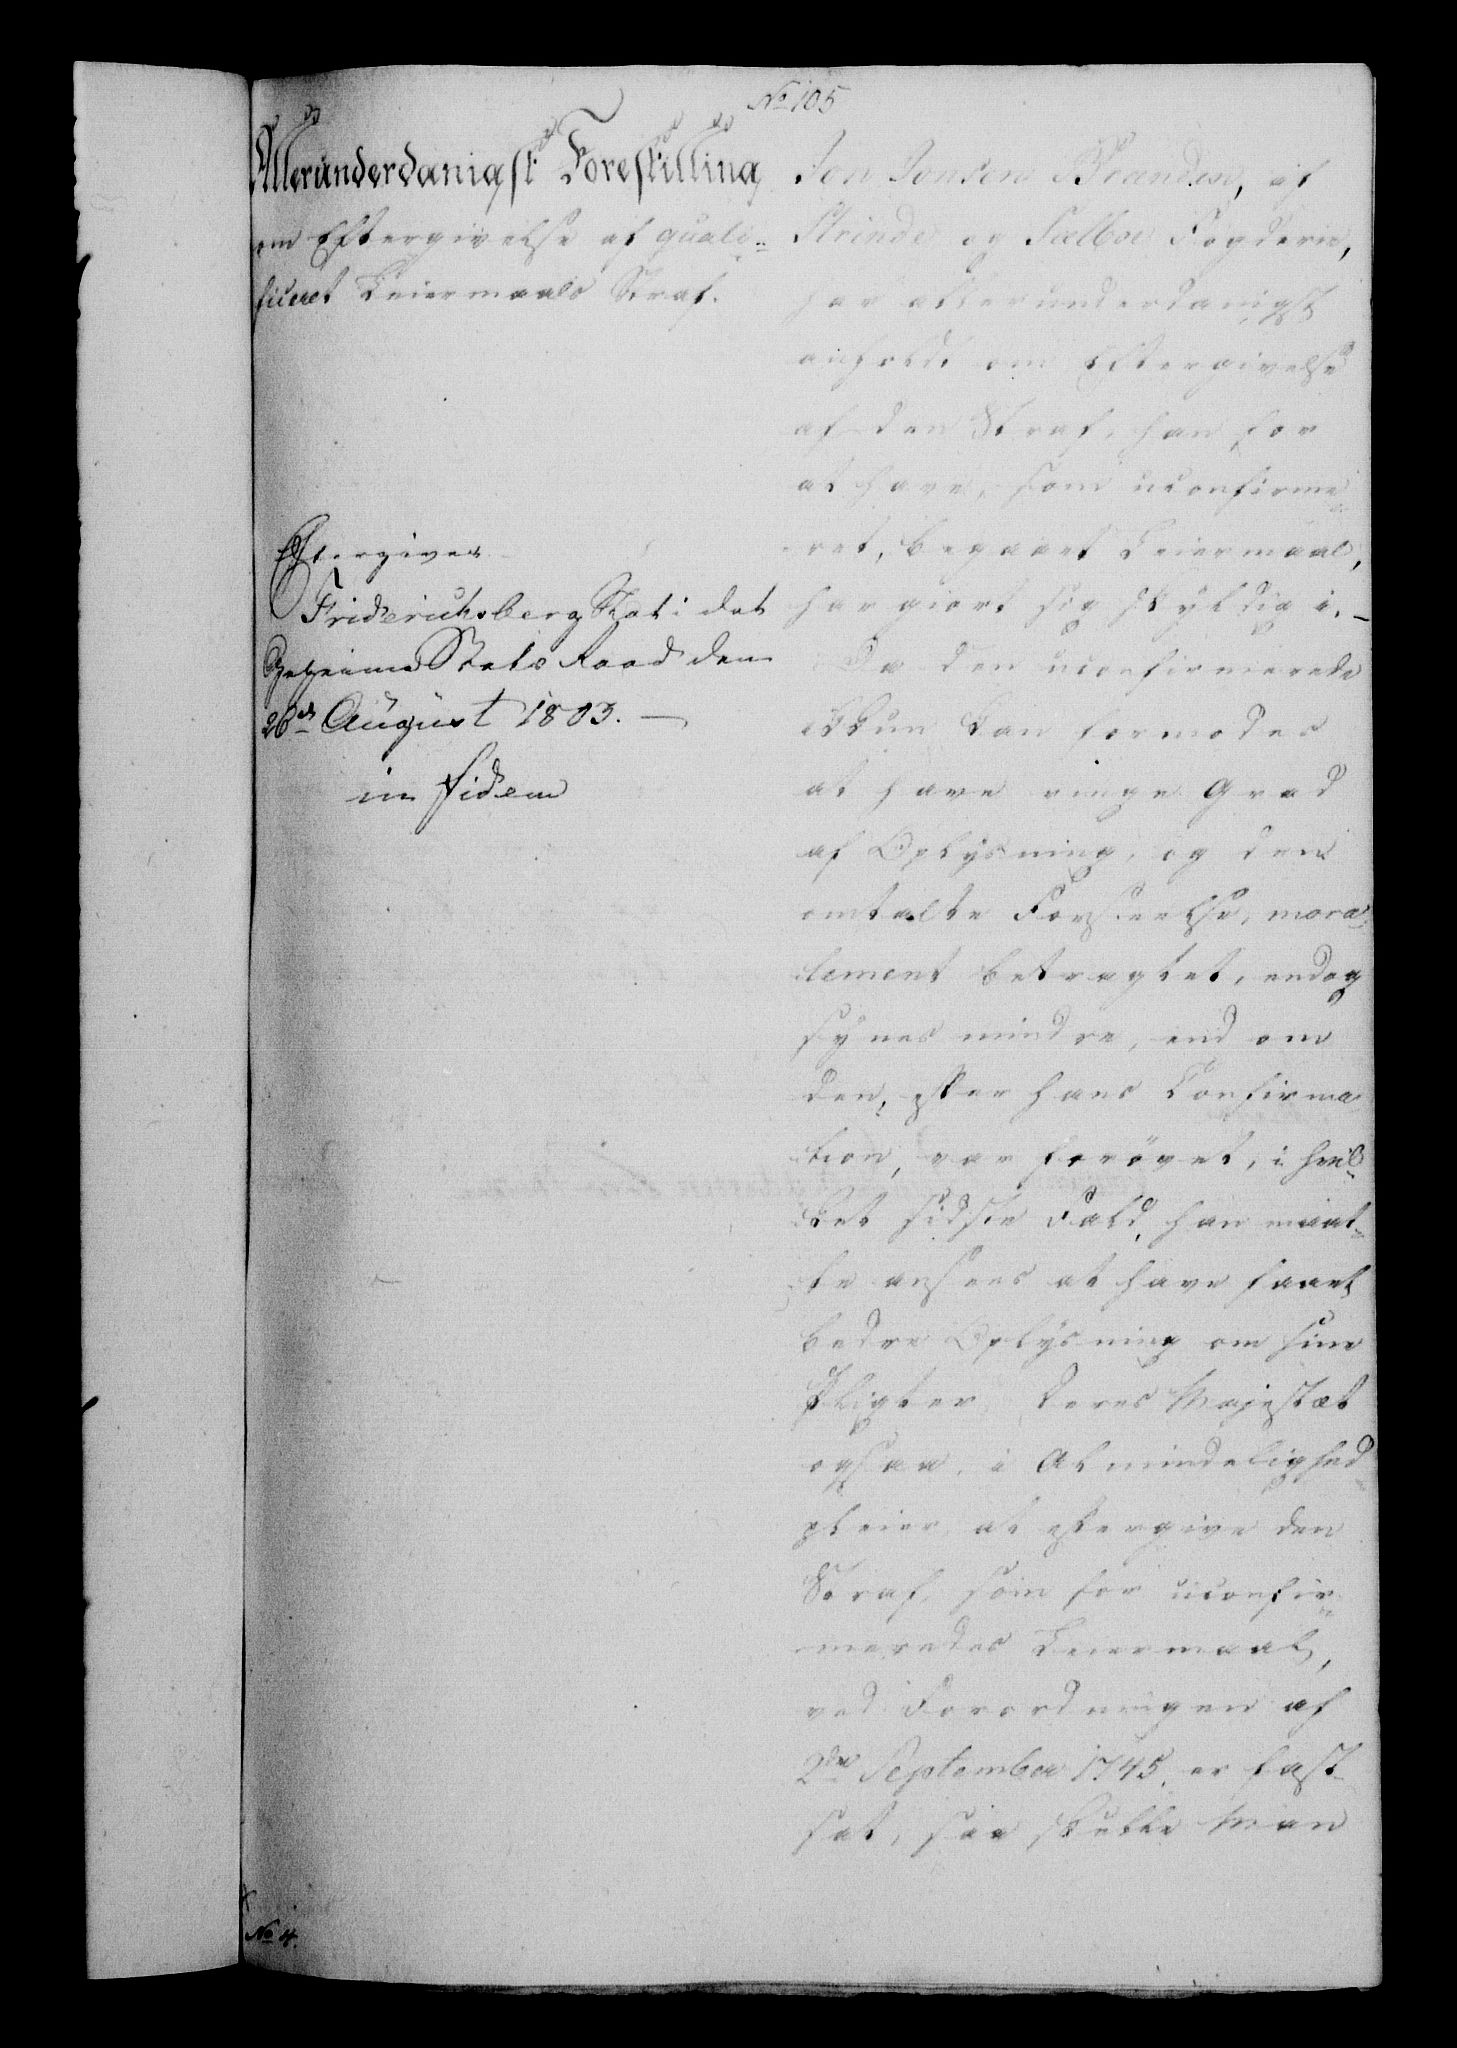 No 105
Allerunderdanigst Forestilling
om Eftergivelse af quali-
ficeret Leiermaals Straf.
Eftergives
Friderichsberg Slot i det
Geheime Stats Raad den
26de August 1803. —
in fidem
Jon Jonsen Branden, af
Strinde og Sælboe Fogderie,
har allerunderdanigst
anholdt om Eftergivelse
af den Straf, han for
at have, som uconfirme-
ret, begaaet Leiermaal,
har giort sig skyldig i. —
Da den uconfirmerede
ikkun kan formodes
at have ringe Grad
af Oplysning, og den
omtalte Forseelse, mora-
lement betragtet, endog
synes mindre, end om
den, efter hans Confirma
tion, var forøvet, i hvil-
ket sidste Fald, han maat-
te ansees at have faaet
bedre Oplysning om sine
Pligter, Deres Majestæt
ogsaa, i Almindelighed
pleier at eftergive den
Straf, som for uconfir-
meredes Leiermaal,
ved Forordningen af
2den September 1745, er fast-
sat, saa skulle Man
No 4.